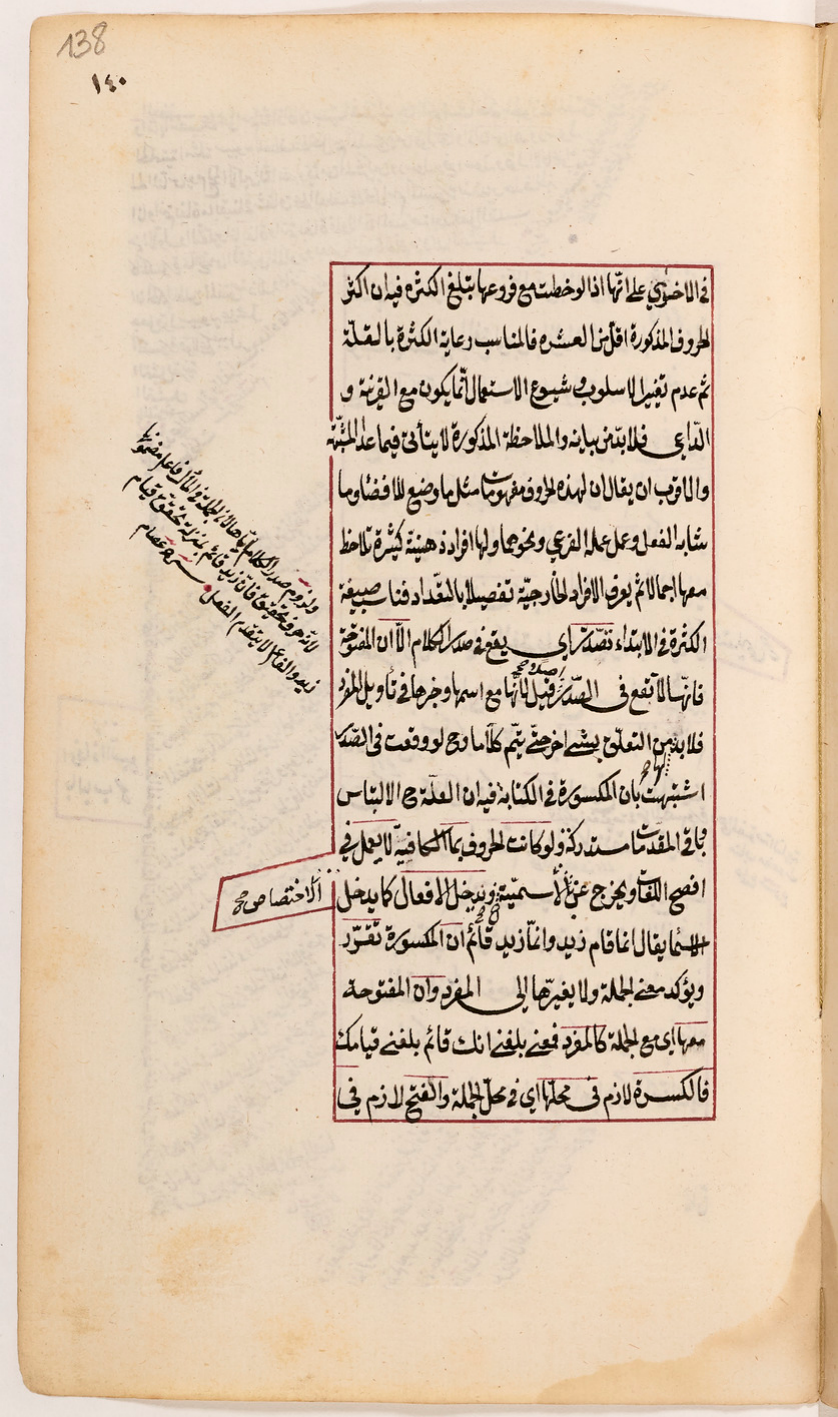 138
١٤٠
في الاخوي على انّها اذا لوحظت مع فروعها يبلغ الكثرة فيه ان اكثر
الحروف المذكورة اقل من العشره فالمناسب رعاية الكثرة بالقلّة
ثم عدم تغيير الاسلوب وشيوع الاستعمال انّما يكون مع القرينة و
الدّاعي فلا بدّ من بيانه والملاحظة المذكورة لا يتأتى فيما عدا المشبّهة
والاقرب ان يقال ان لهذه الحروف مفهومات مثل ما وضع للافضاء وما
شابه الفعل وعمل عمله الفرعي ونحوها ولها افراد ذهنية كثيرة تلاحظ
معها اجمالا ثم يعرف الافراد الخارجيّة تفصيلا بالتعداد فناسب صيغة
الكثرة في الابتداء تصدّر اي يقع في صدر الكلام الّا ان المفتوحة
فانّها لا تقع في الصّدر اصلا صح قيل لانّها مع اسمها وخبرها في تأويل المفرد
فلا بدّ من التعلّق بشئ اخر حتّى يتمّ كلاما وح لو وقعت في الصّدر
اشتبهت بان المكسورة في الكتابة فيه ان العلّة ح الالتباس
وباقي المقدّمات مستدركة ولو كانت الحروف بما الكافيّة لا يعمل في
افصح اللغات ويخرج عن الاسميّة ويدخل الافعال كما يدخل
الاختصاص صح
الاسماء يقال انما قام زيد وانما زيد قائم ان المكسورة تقرّر
ويؤكد معنى الجملة ولا يغيرها الى المفرد وان المفتوحة
معها اي مع الجملة كالمفرد فمعنى بلغني انك قائم بلغني قيامك
فالكسرة لازم في محلها اي في محلّ الجملة والفتح لازم في
ولزوم صدر الكلام
لانّه هو تحقيق فان زيد قائم بمنزلة تحقق قيام
زيد والفاعل لا يتقدم الفعل عصام